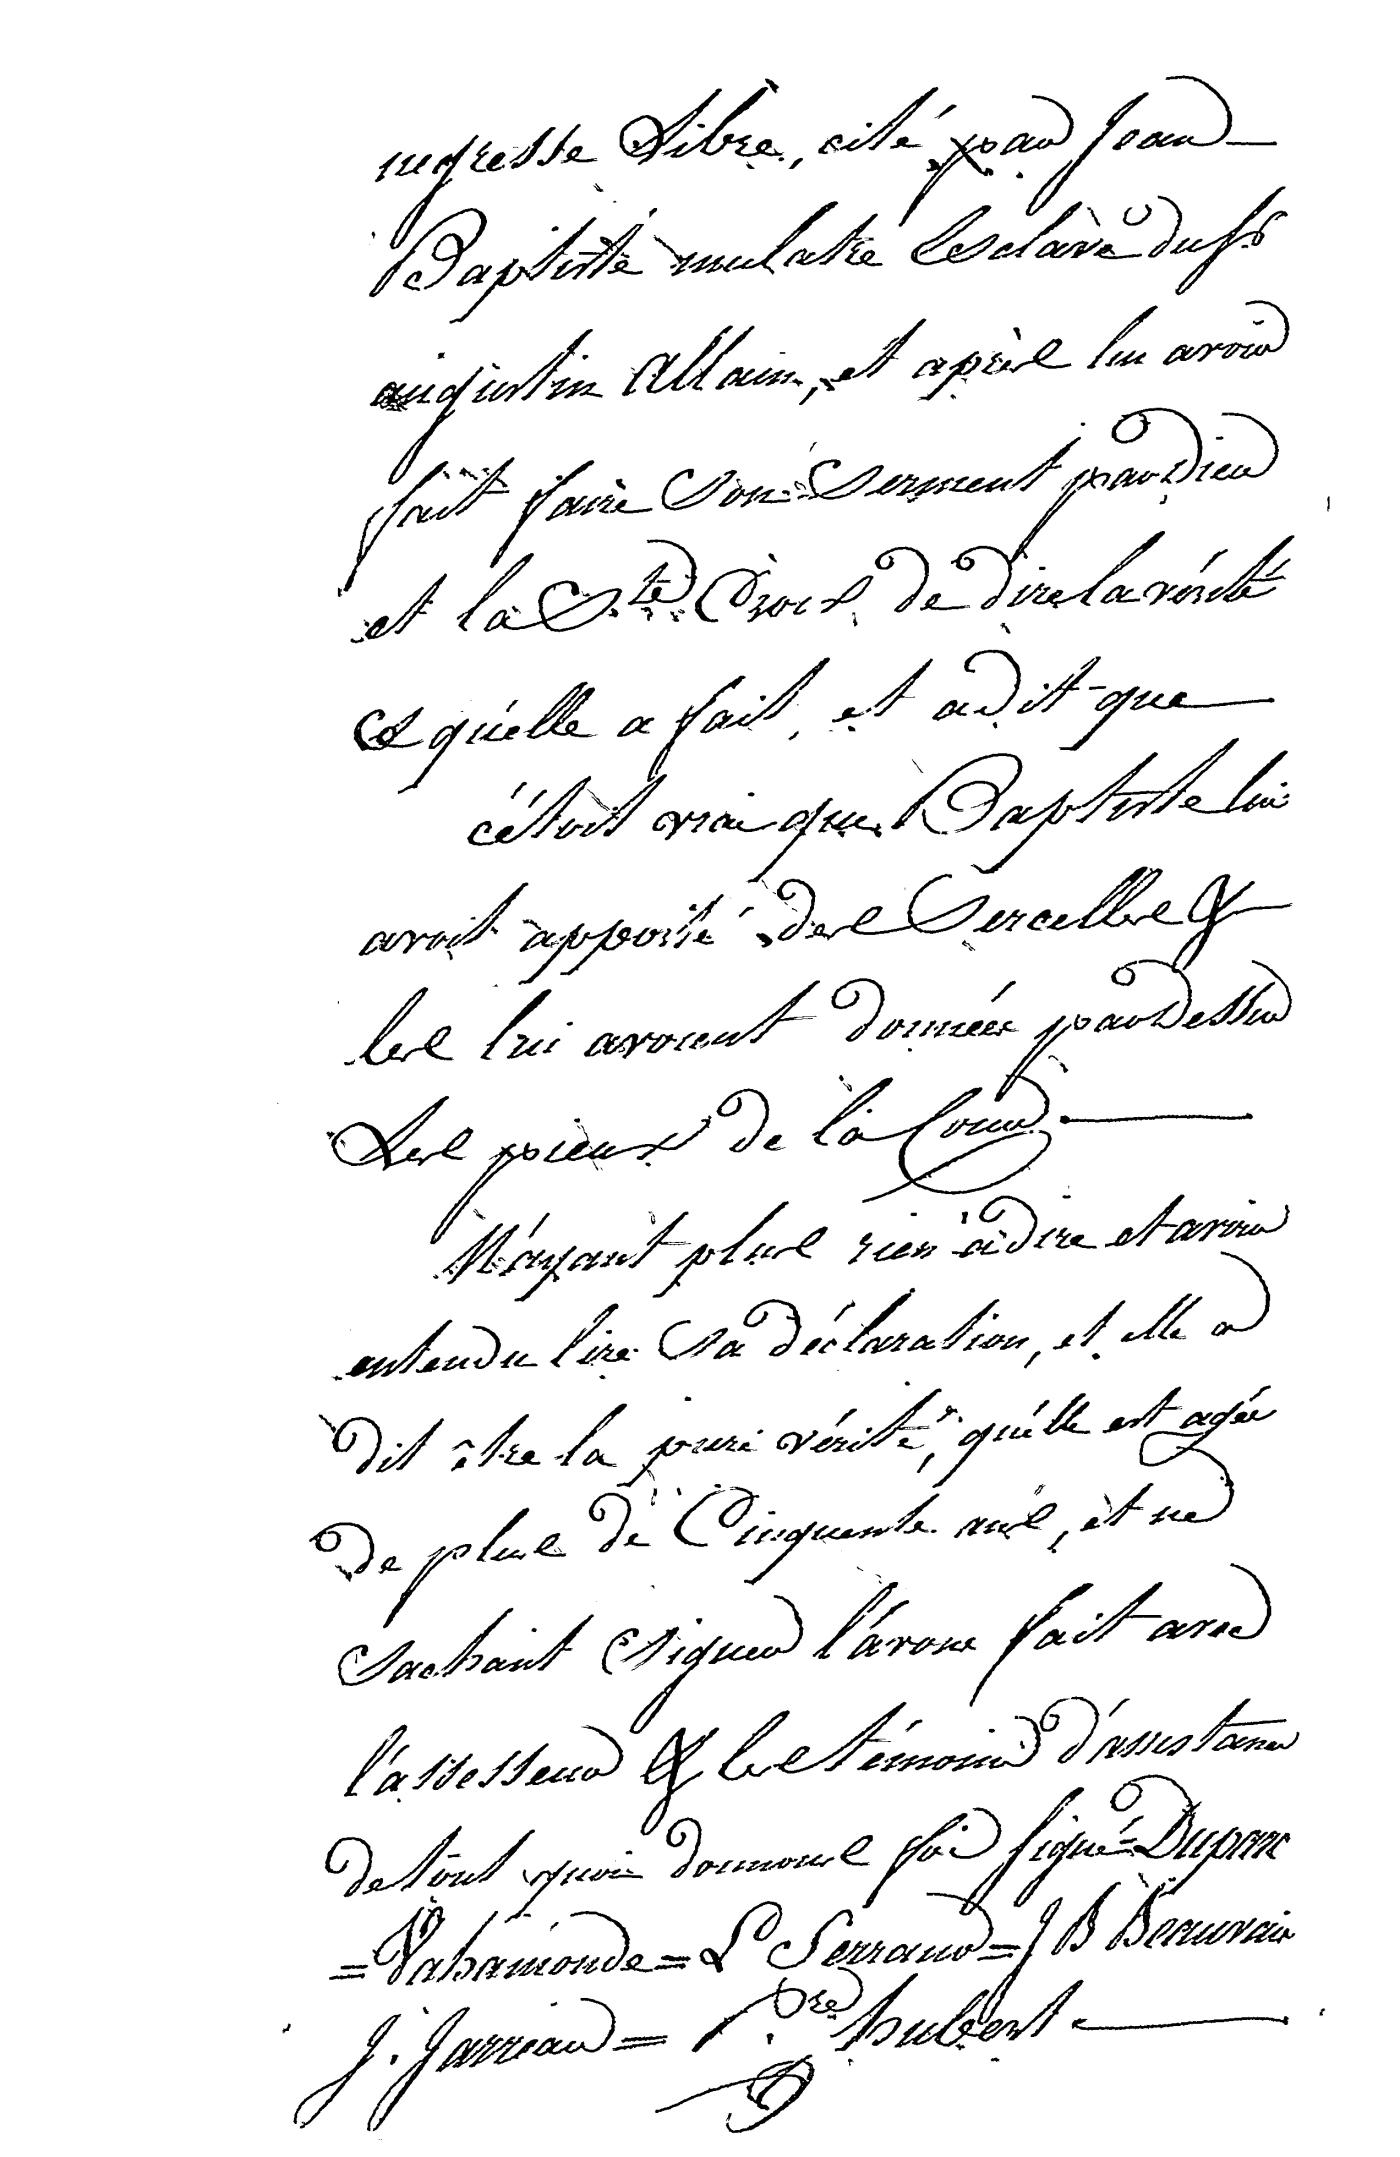 negresse Libre, cité par Jean
Baptiste mulatre Esclave du Sr
augustin Allain, et après lui avoir
fait faire Son Serment par Dieu
et la Ste Croix de dire la vérité
Ce qu'elle a fait, et a dit que
c'étoit vrai que Baptiste lui
avoit apporté des Sercelles &
les lui avoient données par Dessus
Les pieux de la Cour
N'ayant plus rien à dire et avoir
entendu lire Sa déclaration, et elle a
dit être la pure vérité, qu'elle est agée
De plus de Cinquente ans, et ne
Sachant Signer l'avons fait avec
l'assesseur & les témoins d'assistance
de tout quoi donnons foi Signé = Duparc
= Vahamonde = L Serrand = J B Beauvais
J. Jarreau = Pre hubert